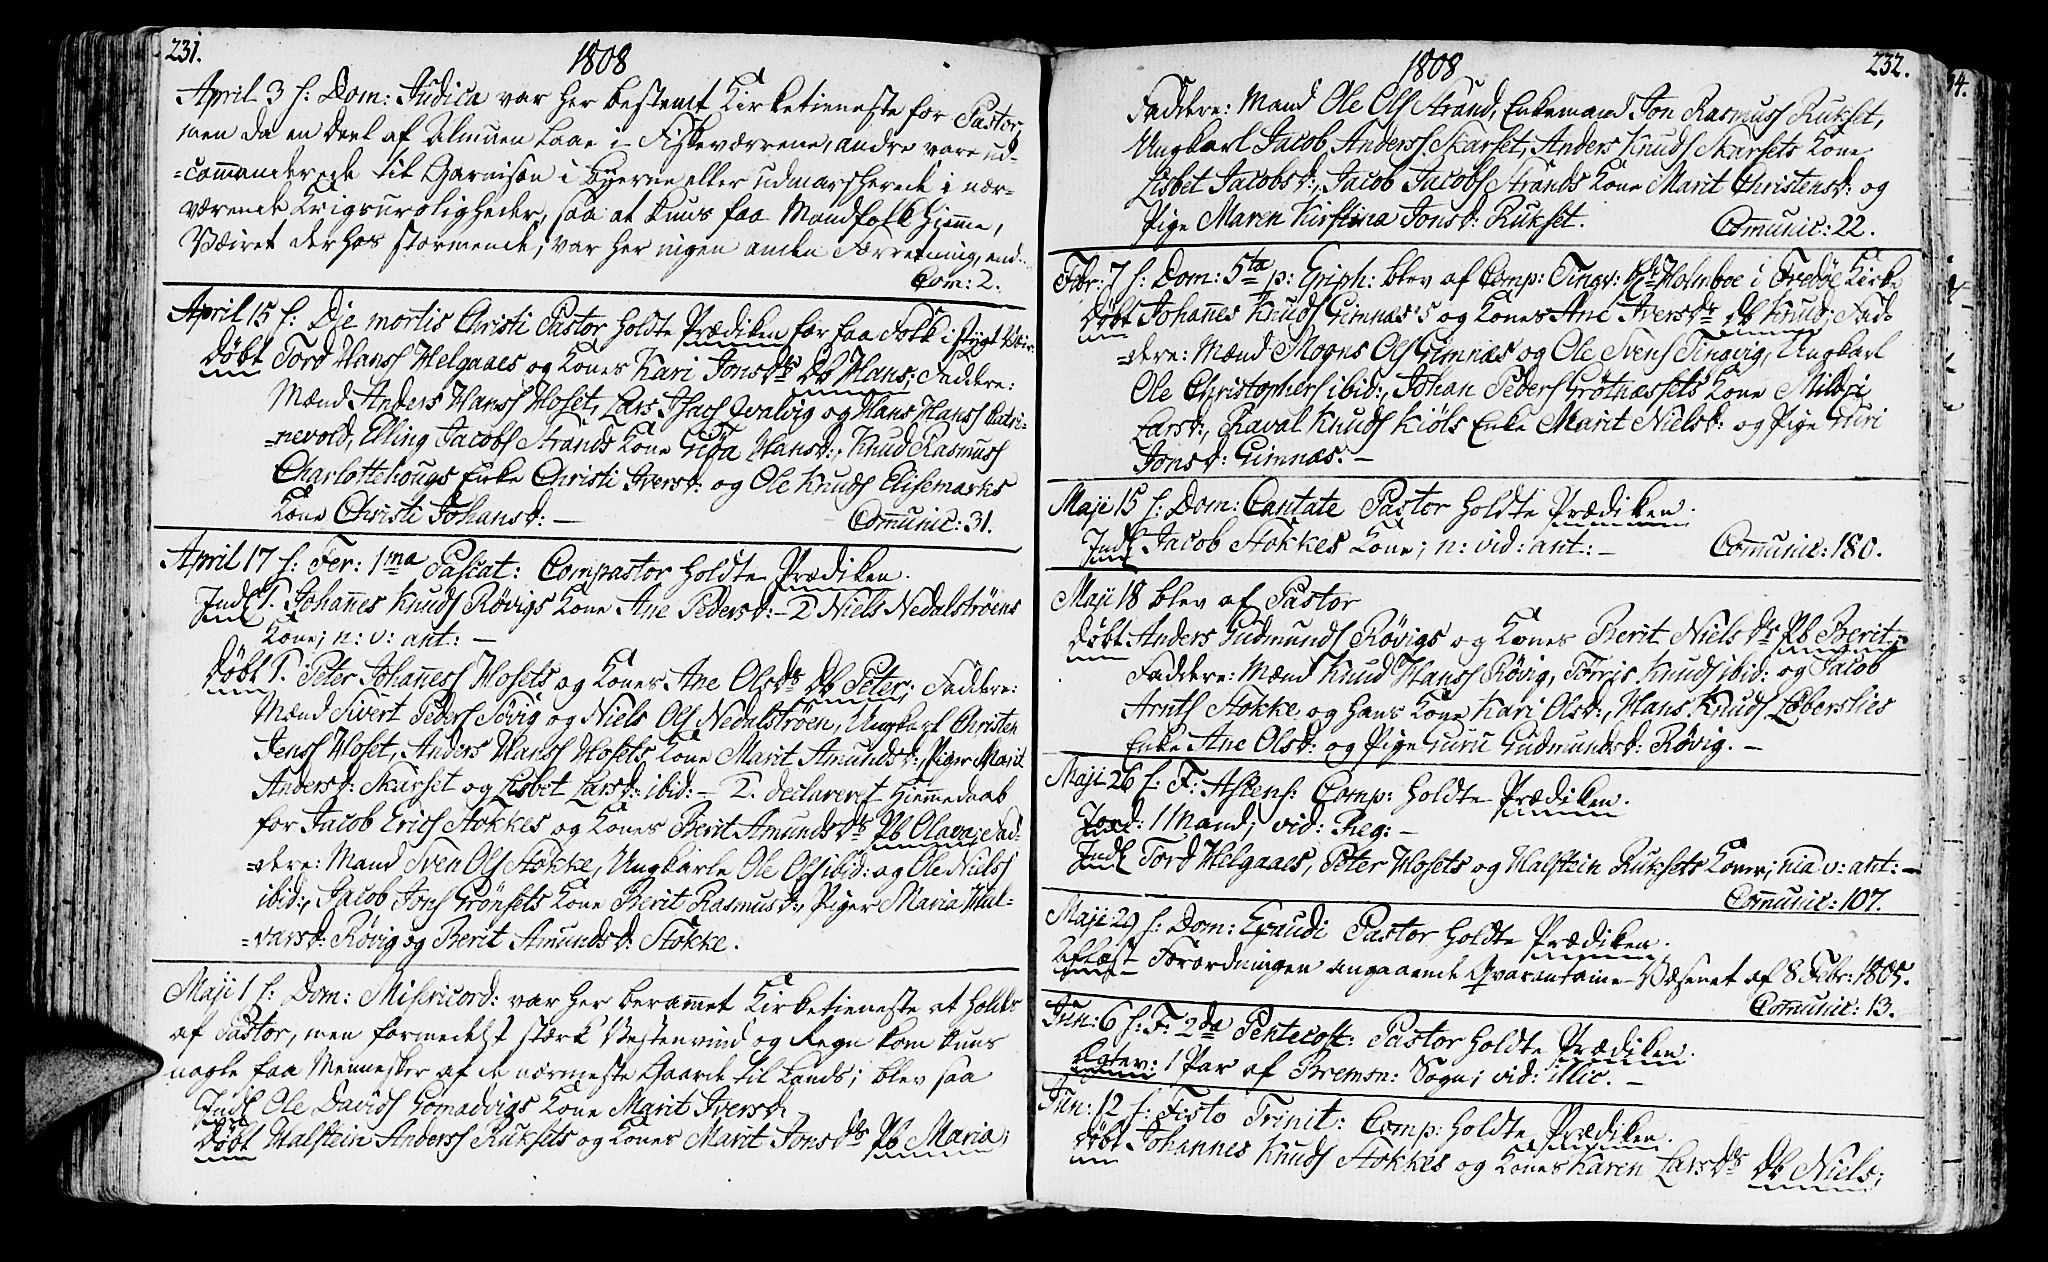 231.
1808
April 3 s: Dom: Judica var her bestemt Kirketieneste for Pastor,
men da en Deel af Almuen laae i Fiskeværrene, andre vare ud-
=commanderede til Garnison i Byerne eller udmarsherede i nær-
værende Krigsuroligheder, saa at kuns faa Mandfolk hiemme,
Væiret derhos stormende, var her ingen anden Forretning, end
Com: 2.
April 15 s: Die mortis Christi Pastor holdte Prædiken for faa Folk i stygt Væir.
Døbt Tord Hanss Helgaaes og Kones Kari Jonsdrs Db Hans; Faddere:
Mænd Anders Hanss Hoset, Lars Isacs Qvalvig og Hans Hanss Catri-
=nevold, Elling Jacobs Strands Kone Gisa Hansd:, Knud Rasmuss
Charlottehougs Enke Christi Iversd: og Ole Knuds Elisemarks
Kone Christi Johansd: —
Com̄unic: 31.
April 17 s: Fer: 1ma Pascat: Compastor holdte Prædiken.
Indl 1. Johan̄es Knuds Røvigs Kone Ane Pedersd: – 2 Niels Nedalstrøens
Kone; n: v: ant: —
Døbt 1. Peter Johan̄ess Hosets og Kones Ane Olsdrs Db Peter; Faddere:
Mænd Sivert Peders Søvig og Niels Ols Nedalstrøen, Ungkarl Christen
Jenss Hoset, Anders Hanss Hosets Kone Marit Amundsd:, Piger Marit
Andersd: Skarset og Lisbet Larsd: ibid: – 2. declareret Hiem̄edaab
for Jacob Erichs Stokkes og Kones Berit Amundsdrs Pb Olava; Fad-
=dere: Mand Sven Ols Stokke, Ungkarle Ole Ols ibid: og Ole Nielss
ibid:, Jacob Jons Grønsets Kone Berit Rasmusd:, Piger Maria Hal-
=varsd: Røvig og Berit Amundsd: Stokke.
Maji 1 s: Dom: Misericord: var her beram̄et Kirketieneste at holdes
af Pastor, men formedelst stærk Vestenvind og Regn kom kuns
nogle faa Mennesker af de nærmeste Gaarde til Lands; blev saa
Indl Ole Davids Gomadvigs Kone Marit Iversd: –
Døbt Halstein Anderss Ruksets og Kones Marit Jonsdrs Pb Maria;
232.
1808
Faddere: Mand Ole Ols Strand, Enkemand Jon Rasmuss Rukset,
Ungkarl Jacob Anderss Skarset, Anders Knuds Skarsets Kone
Lisbet Jacobsd:, Jacob Jacobs Strands Kone Marit Christensd: og
Pige Maren Kirstina Jonsd: Rukset.
Com̄unic: 22.
Febr: 7 s: Dom: 5ta p: Epiph: blev af Comp: Tingv: Holmboe i Fredøe Kirke
Døbt Johan̄es Knuds Gimnæs's og Kones Ane Iversdrs Db Knud; Fad-
=dere: Mænd Mogns Ols Gimnæs og Ole Svens Tingvig, Ungkarl
Ole Christophers ibid:, Johan Peders Grøtnæssets Kone Mildri
Larsd:, Raval Knuds Kiøls Enke Marit Nielsd: og Pige Guri
Jonsd: Gimnæs. —
Maji 15 s: Dom: Cantate Pastor holdte Prædiken.
Indl Jacob Stokkes Kone; n: vid: ant: —
Com̄unic: 180.
Maji 18 blev af Pastor
Døbt Anders Gudmunds Røvigs og Kones Berit Nielsdrs Pb Berit;
Faddere: Mænd Knud Hanss Røvig, Torris Knuds ibid: og Jacob
Arnts Stokke og hans Kone Kari Olsd:, Hans Knuds Leberslies
Enke Ane Olsd: og Pige Guru Gudmundsd: Røvig. —
Maji 26 s: F: Ascens: Comp: holdte Prædiken.
Jord: 1 Mand; vid: Reg: —
Indl Tord Helgaaes, Peter Hosets og Halstein Ruksets Koner; nia v: ant: —
Com̄unic: 107.
Maji 29 s: Dom: Exaudi Pastor holdte Prædiken.
Aflæst Forordningen angaaende Qvarantaine-Væsenet af 8 Febr: 1805.
Com̄unic: 13.
Jun: 6 s: F: 2da Pentecost: Pastor holdte Prædiken.
Ægtev: 1 Par af Bremsn: Sogn; vid: illic. —
Jun: 12 s: Festo Trinit: Comp: holdte Prædiken.
Døbt Johannes Knuds Stokkes og Kones Karen Larsdrs Db Niels;